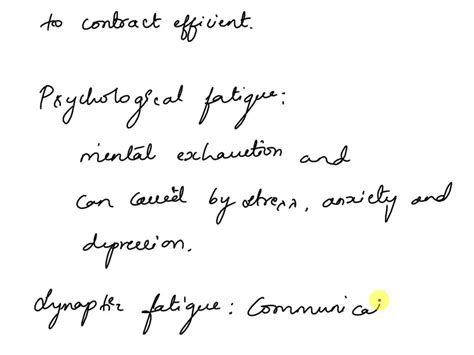 to contract efficient.
Psychological fatigue:
mental exhaustion and
can caused by stress, anxiety and
depression.
Synaptic fatigue: Communica